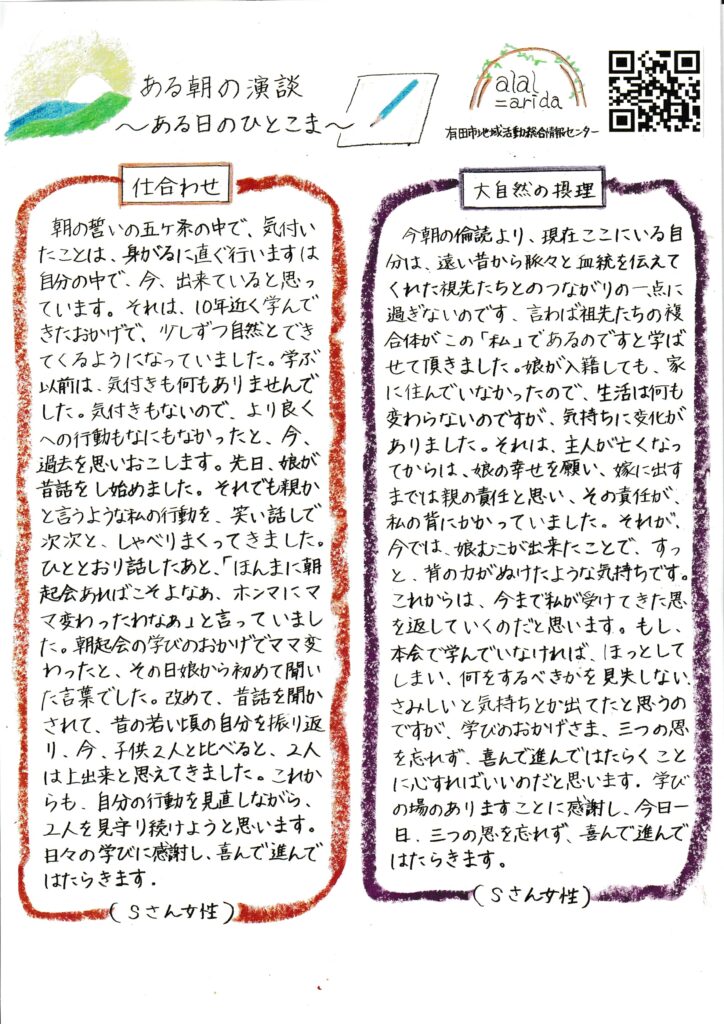 ある朝の演談
～ある日のひとこま～
alal
=arida
有田市地域活動総合情報センター
仕合わせ
朝の誓いの五ケ条の中で、気付い
たことは、身がるに直ぐ行いますは
自分の中で、今、出来ていると思っ
ています。それは、10年近く学んで
きたおかげで、少しずつ自然とでき
てくるようになっていました。学ぶ
以前は、気付きも何もありませんで
した。気付きもないので、より良く
への行動もなにもなかったと、今、
過去を思いおこします。先日、娘が
昔話をし始めました。それでも親か
と言うような私の行動を、笑い話しで
次次と、しゃべりまくってきました。
ひととおり話したあと、「ほんまに朝
起会あればこそよなあ、ホンマにマ
マ変わったわなぁ」と言っていまし
た。朝起会の学びのおかげでママ変
わったと、その日娘から初めて聞い
た言葉でした。改めて、昔話を聞か
されて、昔の若い頃の自分を振り返
り、今、子供2人と比べると、2人
は上出来と思えてきました。これか
らも、自分の行動を見直しながら、
2人を見守り続けようと思います。
日々の学びに感謝し、喜んで進んで
はたらきます.
(Sさん女性)
大自然の摂理
今朝の倫読より、現在ここにいる自
分は、遠い昔から脈々と血統を伝えて
くれた視先たちとのつながりの一点に
過ぎないのです、言わば祖先たちの複
合体がこの「私」であるのですと学ば
せて頂きました。娘が入籍しても、家
に住んでいなかったので、生活は何も
変わらないのですが、気持ちに変化が
ありました。それは、主人が亡くなっ
てからは、娘の幸せを願い、嫁に出す
までは親の責任と思い、その責任が、
私の背にかかっていました。それが、
今では、娘むこが出来たことで、すっ
と、背の力がぬけたような気持ちです。
これからは、今まで私が受けてきた恩
を返していくのだと思います。もし、
本会で学んでいなければ、ほっとして
しまい、何をするべきかを見失しない、
さみしいと気持ちとか出てたと思うの
ですが、学びのおかげさま、三つの恩
を忘れず、喜んで進んではたらくこと
に心すればいいのだと思います. 学び
の場のありますことに感謝し、今日一
日、三つの恩を忘れず、喜んで進んで
はたらきます。
(Sさん女性)